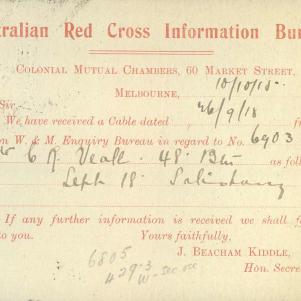 tralian Red Cross Information Bu
COLONIAL MUTUAL CHAMBERS, 60 MARKET STREET,
MELBOURNE, 10/10/18
Sir
We have received a Cable dated 26/9/18 f
n W. & M. Enquiry Bureau in regard to No. 6903
C. R. Veall. 48. Btn as fol
Sept 18.
If any further information is received we shall f
to you. Yours faithfully,
J. BEACHAM KIDDLE,
6805 Hon. Secre